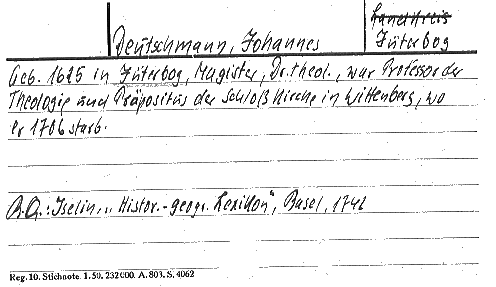 Landkreis
Deutschmann, Johannes Jüterbog
Geb. 1625 in Jüterbog, Magister, Dr. theol., war Professor der
Theologie und Präpositus der Schloß Kirche in Wittenberg, wo
er 1706 starb.
B.Q.: Iselin, „Histor.-geogr. Lexikon", Basel, 1742
Reg. 10. Stichnote. 1. 50. 232000. A. 803. S. 4062